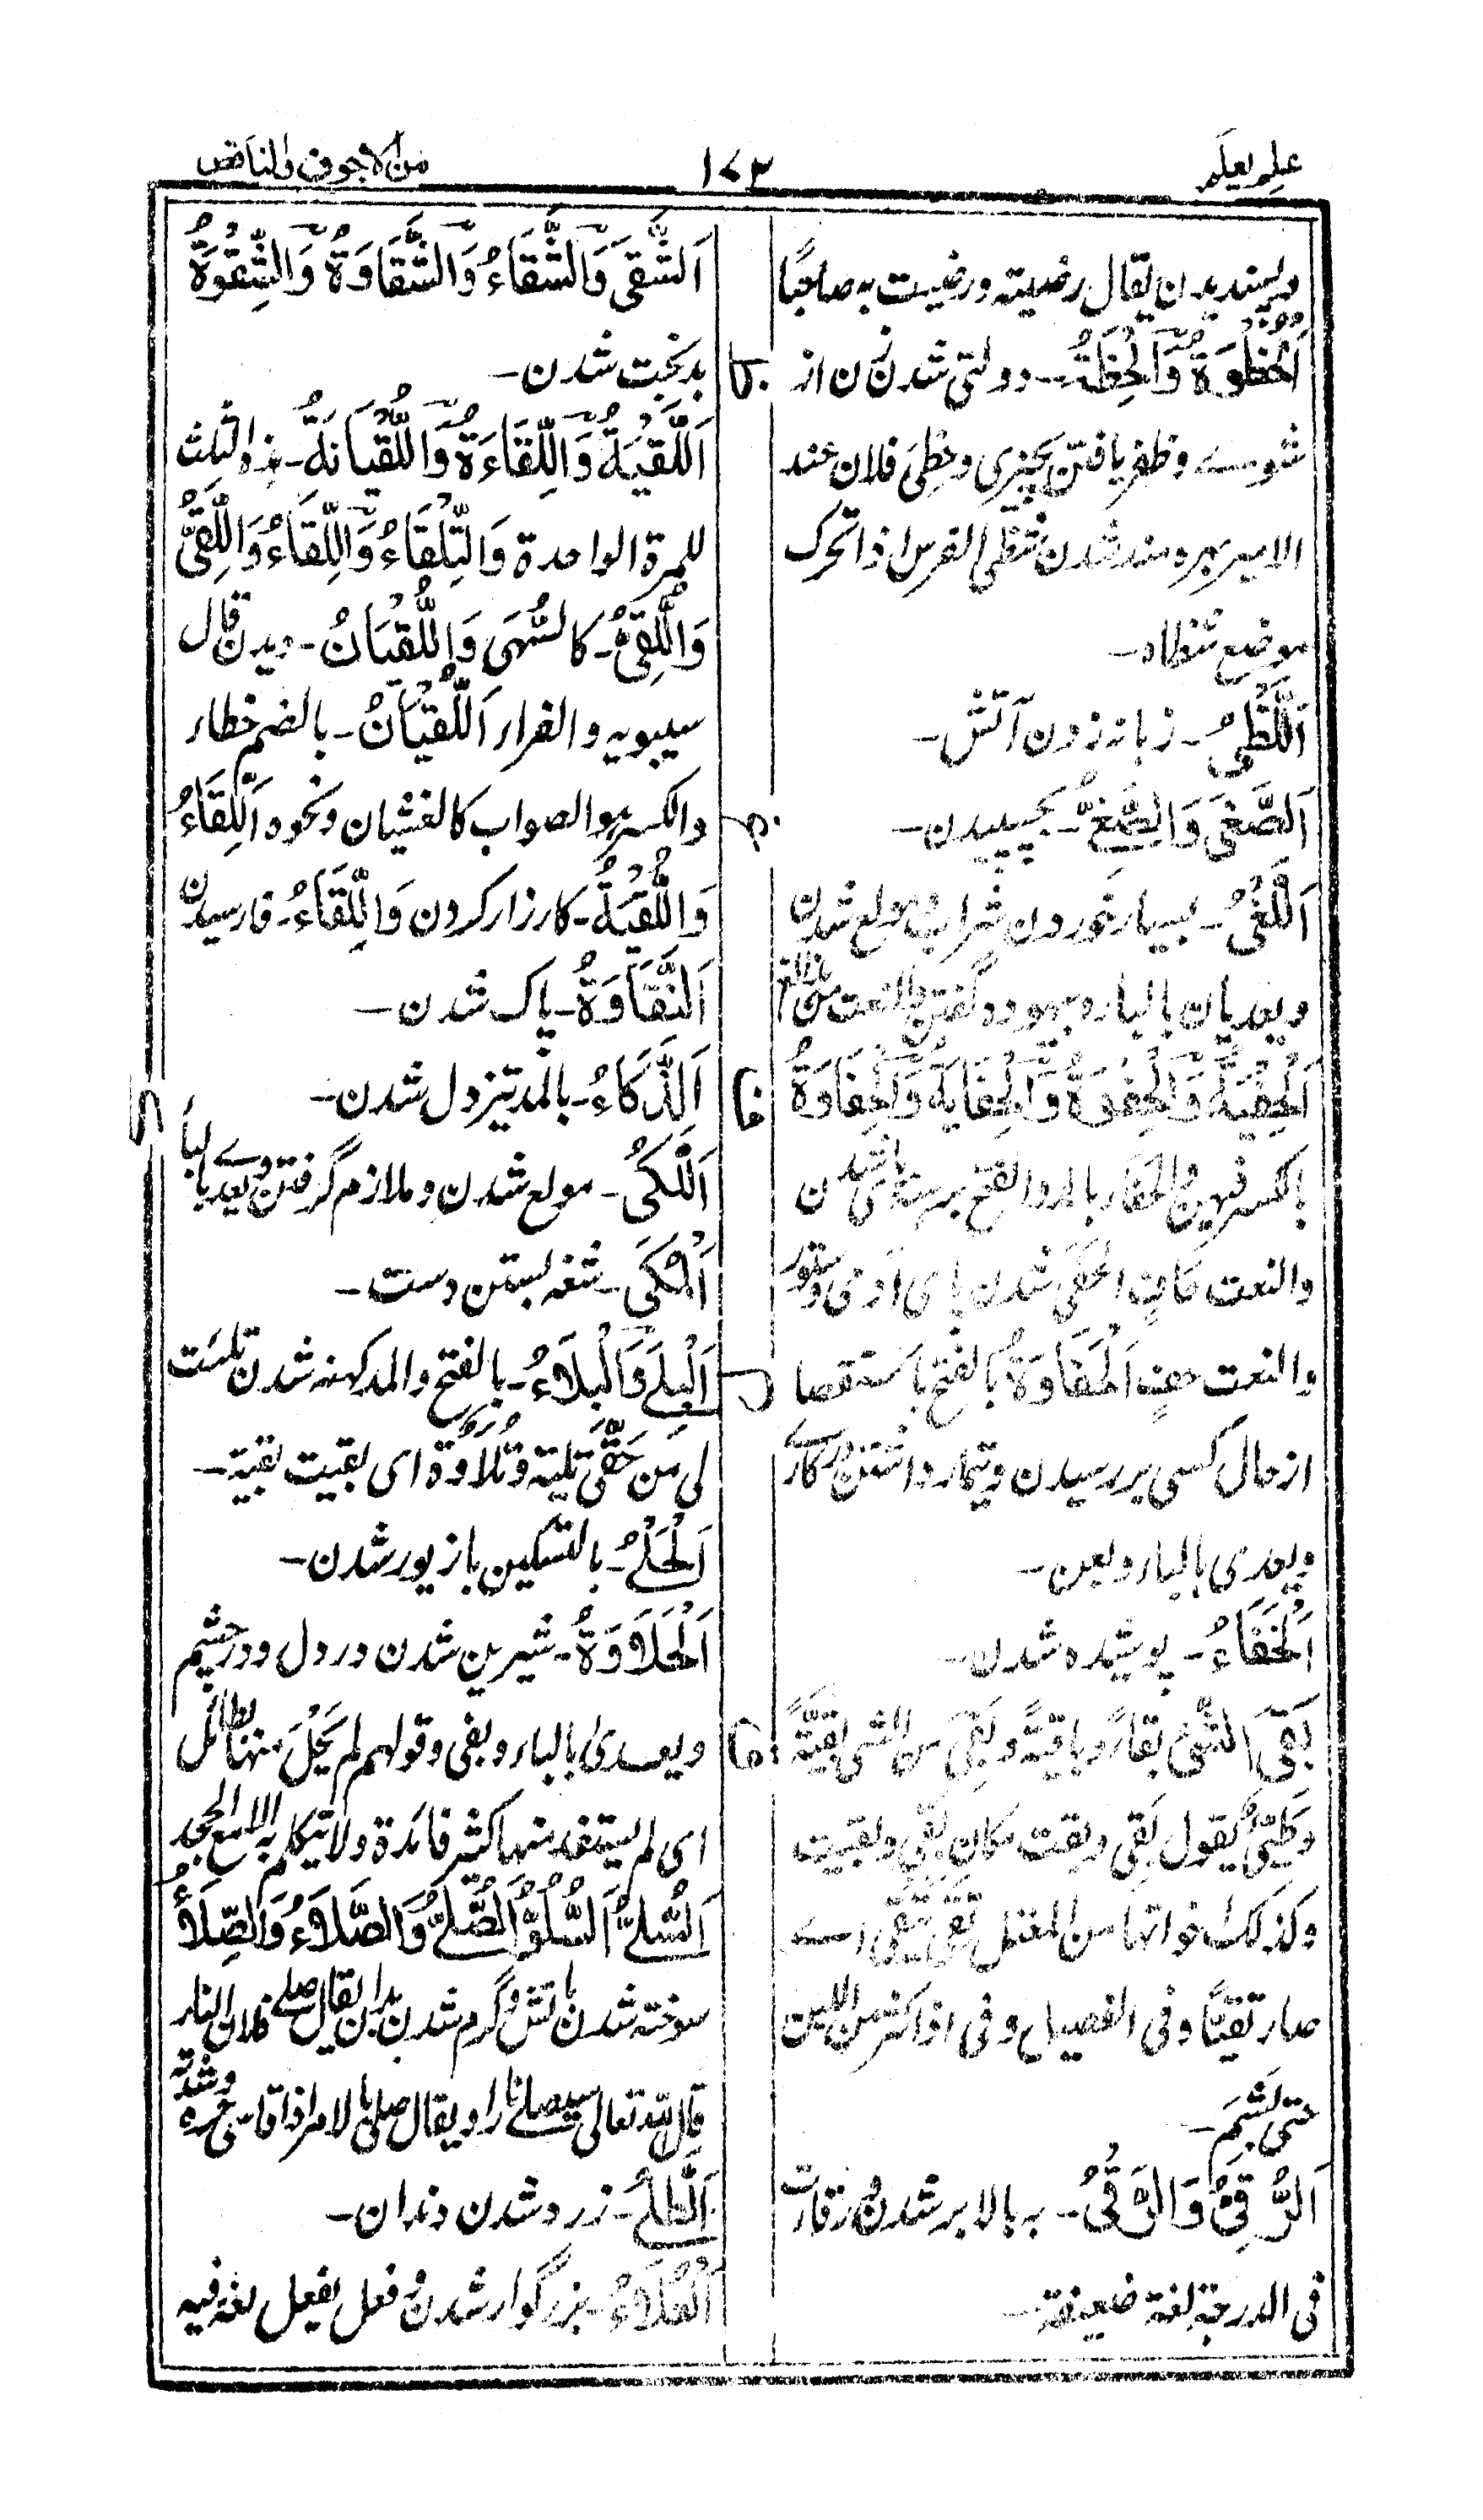 علم یعلم
۱۷۳
من الاجوف والناقص
وپسندیدن یقال رضیته و رضیت به صاحبًا
اَلْحُظْوَةُ وَالْحِظَةُ۔ دولتی شدن زن از
شوے و ظفر یافتن بچیزی وحَظِیَ فلان عند
الامیر بهره مند شدن شظی الفرس اذا تحرک
موضع شظاه۔
اَللَّظٰی۔ زبانه زدن آتش۔
اَلصَّغَی وَالصُّغِیُّ۔ بچسپیدن۔
اَللَّغٰی۔ بسیار خوردن شراب و مولع شدن
ویعدیان بالباء و بیهوده گفتن والنعت من
اَلْحِفْیَةُ وَالْحِفْوَةُ وَالْحِفَایَةُ وَالْحِفَاوَةُ
بالکسر فیهن والحفاء بالمد والفتح برهنه پای شدن
والنعت حافٍ الحفی شدن پای آدمی و ستور
والنعت حفٍ اَلْحَفَاوَةُ بالفتح باستقصا
از حال کسی بررسیدن و تیمار داشتن در کارے
ویعدی بالباء وبعن۔
اَلْخَفَاءُ۔ پوشیده شدن۔
بَقِیَ الشَّئُ بقاءً وباقیةً وبَقِیَ من الشی بقیَّةً
وطَیِّئٌ یقول بَقٰی وبقت مکان بَقِیَ وبقیت
وکذلک اخواتها من المعتل تَقِیَ یَتْقٰی اے
صار تقیًّا وفی الفصیل وفی اذا اکثر من اللبن
حتی بَشِمَ۔
اَلرُّقِیُّ وَالرَّقْیُ۔ به بالا بر شدن و رقأت
فی الدرجة لغة ضعیفة۔
اَلشَّقٰی وَالشَّقَاءُ وَالشَّقَاوَةُ وَالشِّقْوَةُ
بدبخت شدن۔
اَللَّقْیَةُ وَاللِّقَاءَةُ وَاللُّقْیَانَةُ۔ هذه الثلث
للمرة الواحدة وَالتِّلْقَاءُ وَاللِّقَاءُ وَاللُّقِیُّ
وَاللُّقٰی۔ کالسُّهٰی وَاللُّقْیَانُ۔ دیدن قال
سیبویه والفراء اَللُّقْیَانُ۔ بالضم خطاء
والکسر هو الصواب کالغشیان ونحوه اَللِّقَاءُ
وَاللُّقْیَةُ۔ کارزار کردن وَاللِّقَاءُ۔ فارسیدن
اَلنَّقَاوَةُ۔ پاک شدن۔
اَلذَّکَاءُ۔ بالمد تیز دل شدن۔
اَللَّکٰی۔ مولع شدن و ملازم گرفتن وے یعدی بالباء
اَلْمَکٰی۔ شغه بستن دست۔
اَلْبِلٰے وَالْبَلَاءُ۔ بالفتح والمد کهنه شدن تلیت
لی من حَقِّی تلیة وتُلَاوَة ای بقیت بقیة۔
اَلْحَلْےُ۔ بالتسکین با زیور شدن۔
اَلْحَلَاوَةُ۔ شیرین شدن در دل و در چشم
ویعدیٰ بالباء وبفی وقولهم لم یَحْلَ منها بطائل
ای لم یستفد منها کثیر فائدة ولا یتکلم به الا مع الجحد
اَلسُّلِیُّ اَلسُّلُوُّ اَلصُّلِیُّ وَالصَّلَاءُ وَالصِّلَاءُ
سوخته شدن بآتش و گرم شدن بدان یقال صلے فلان النار
قال الله تعالی سیصلے نارا ویقال صلی بالامر اذا قاسی حره وشدته
اَلطَّلٰے۔ زرد شدن دندان۔
اَلْعَلَاءُ۔ بزرگوار شدن و فعل یفعل لغة فیه